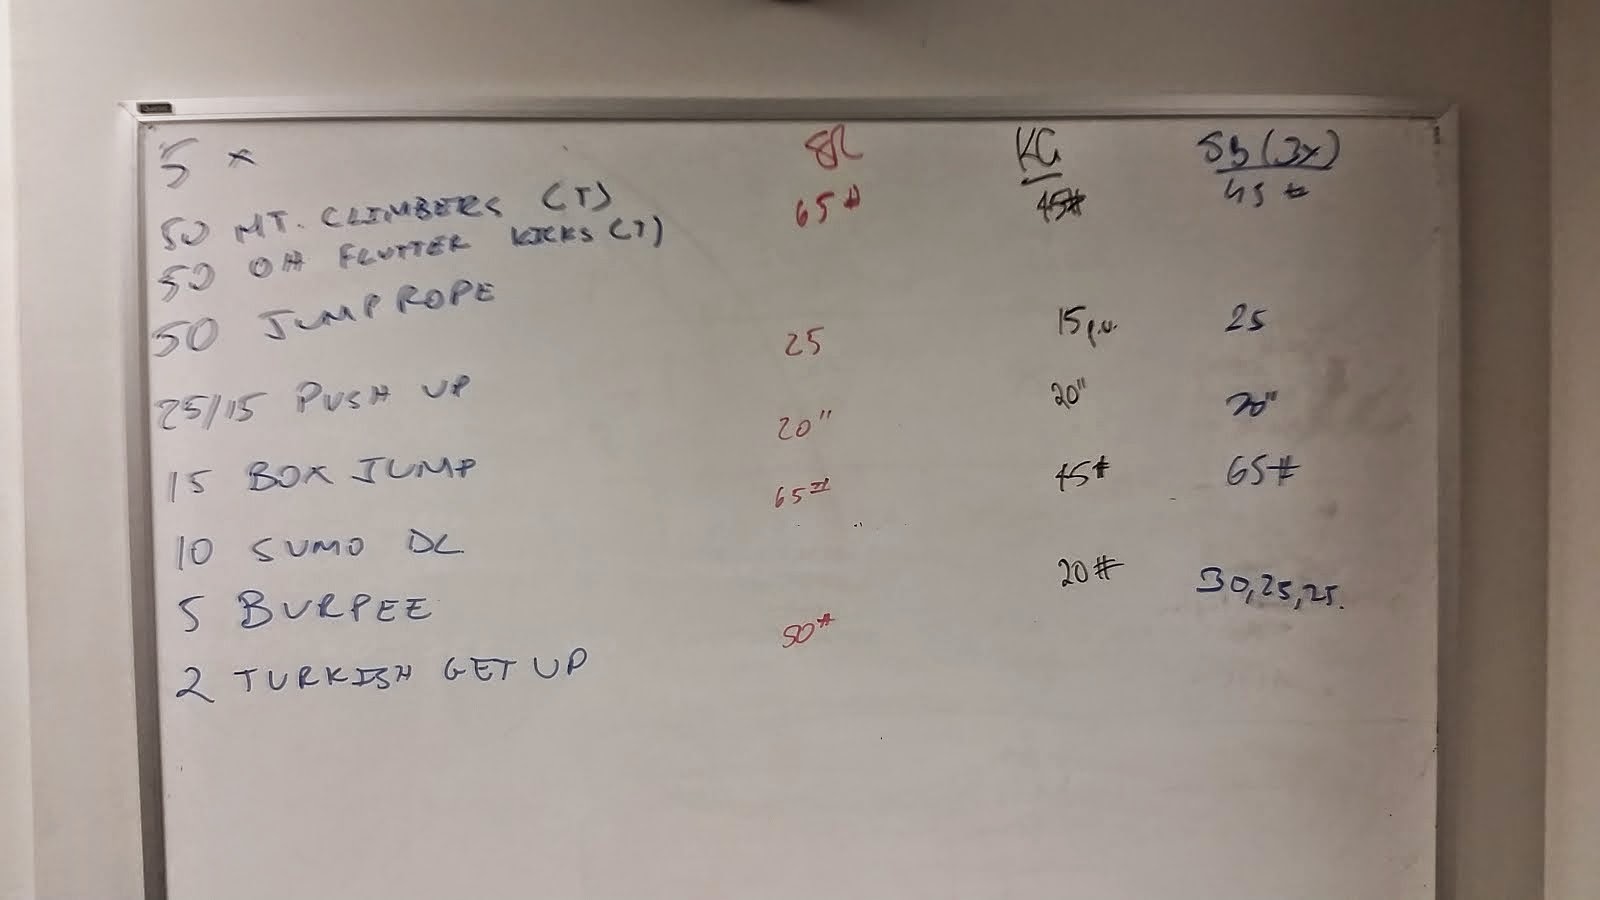 5 x SR KG SB (3x)
50 MT. CLIMBERS (T) 65# 45# 45#
50 OH FLUTTER KICKS (T)
50 JUMP ROPE
25/15 PUSH UP 25 15 p.u. 25
15 BOX JUMP 20" 20" 20"
10 SUMO DL 65# 45# 65#
5 BURPEE
2 TURKISH GET UP 50# 20# 30, 25, 25.